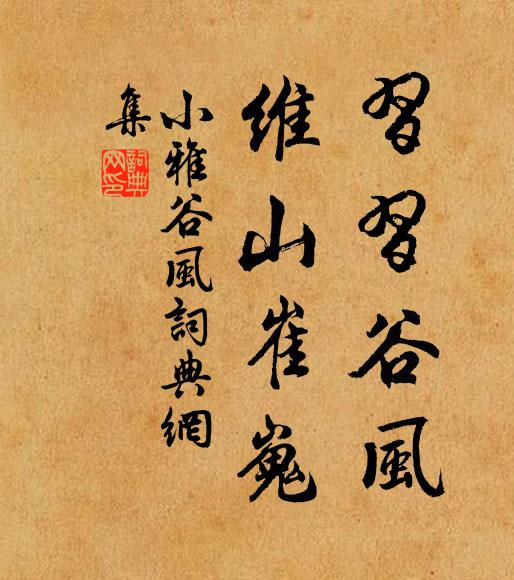 習習谷風
維山崔嵬
小雅谷風詞典網
集
詞典
网印